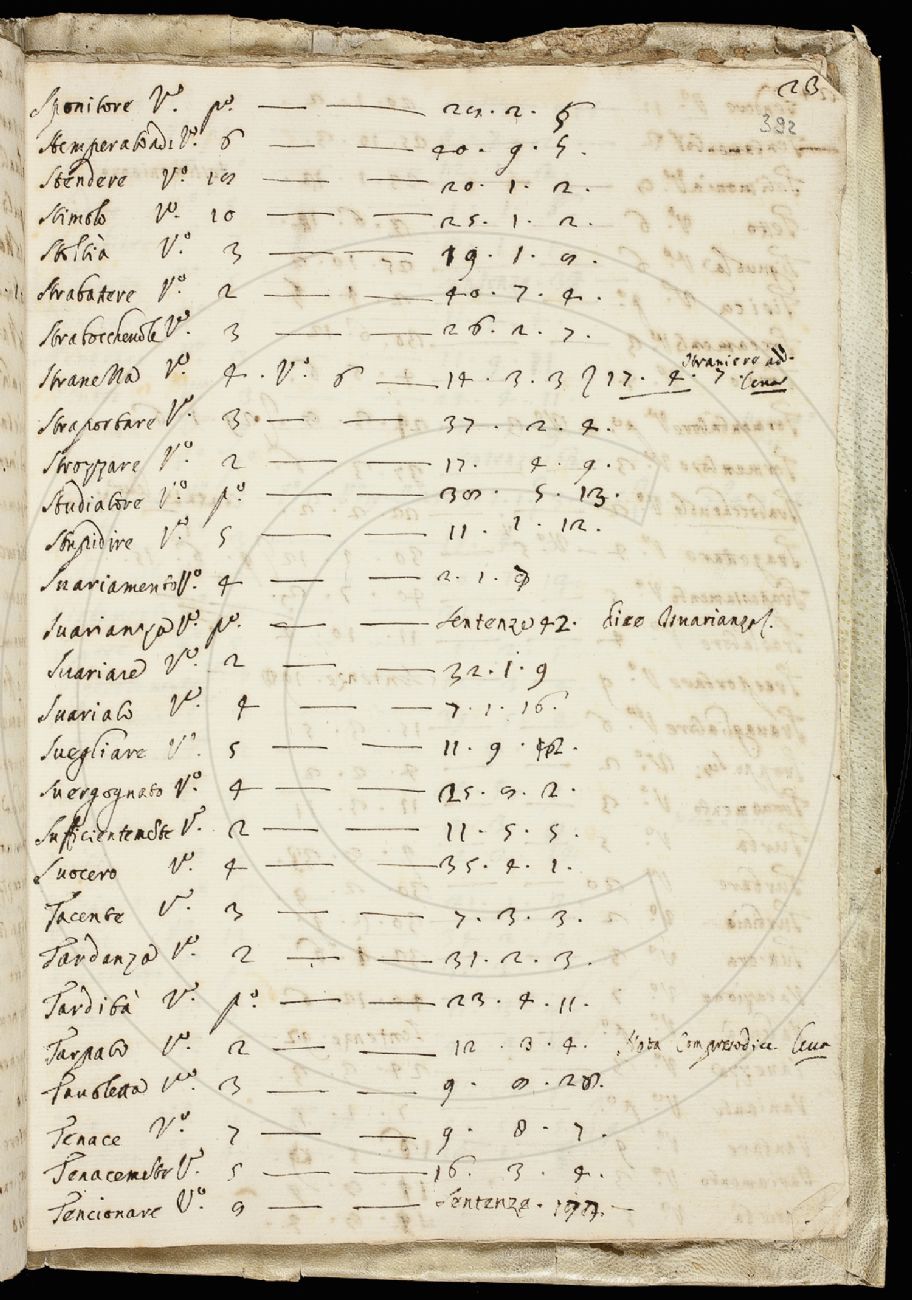 23
392
Sponitore Vº. pº. — — 28. 2. 5
Stemperatoadi Vº. 6 — — 40. 9. 5.
Stendere Vº. 18 — — 20. 1. 2.
Stimolo Vº. 10 — — 25. 1. 2.
Vº. 3 — — 19. 1. 8.
Strabattere Vº. 2 — — 40. 7. 4.
Strabocchevole Vº. 3 — — 26. 2. 7.
Stranetta Vº. 4. Vº. 6 — 14. 3. 3 } 17. 4. 7 Straniere
Straportare Vº. 3 — — 37. 2. 4.
Strozzare Vº. 2 — — 17. 4. 9.
Studiatore Vº. pº. — — 38. 5. 13.
Stupidire Vº. 5 — — 11. 2. 12.
Suariamento Vº. 4 — — 2. 1.
Suarianza Vº. pº. — — Sentenze 42. dice
Suariare Vº. 2 — — 32. 1. 9
Suariato Vº. 4 — — 7. 1. 16.
Suegliare Vº. 5 — — 11. 9. 12.
Suergognato Vº. 4 — — 25. 8. 2.
Sufficientemte Vº. 2 — — 11. 5. 5.
Suocero Vº. 4 — — 35. 4. 1.
Tacente Vº. 3 — — 7. 3. 3.
Tardanza Vº. 2 — — 31. 2. 3.
Tardità Vº. pº. — — 23. 4. 11.
Tarpato Vº. 2 — — 12. 3. 4. Nota
Tauoletta Vº. 3 — — 9. 8. 28.
Tenace Vº. 7 — — 9. 8. 7.
Tenacemte Vº. 5 — — 16. 3. 4.
Tencionare Vº. 9 — — Sentenze.